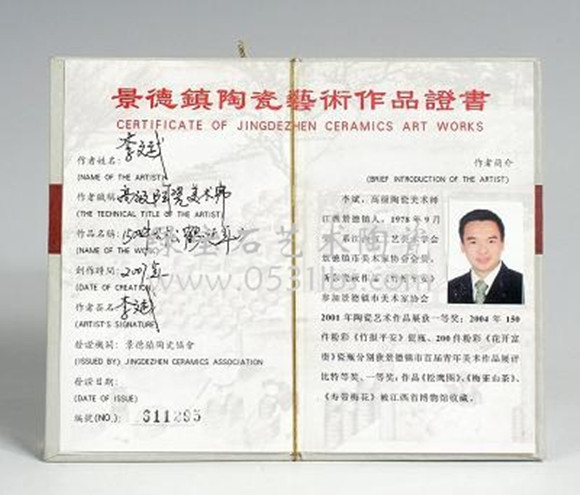 景德鎮陶瓷藝術作品證書
CERTIFICATE OF JINGDEZHEN CERAMICS ART WORKS
作者姓名:
(NAME OF THE ARTIST)
作者職稱: 高级陶瓷美术师
(THE TECHNICAL TITLE OF THE ARTIST)
作品名稱: 150件
(NAME OF THE WORK)
創作時間: 2007年
(DATE OF CREATION)
作者簽名:
(ARTIST'S SIGNATURE)
發證機關: 景德鎮陶瓷協會
(ISSUED BY) JINGDEZHEN CERAMICS ASSOCIATION
發證日期:
(DATE OF ISSUE)
編號(NO.): 611295
作者簡介
(BRIEF INTRODUCTION OF THE ARTIST)
李斌,高级陶瓷美术师
江西景德镇人,1978年9月
系江西省工艺美术学会
景德镇市美术家协会会员。
《竹报平安》
参加景德镇市美术家协会
2001年陶瓷艺术作品展获一等奖;2004年150
件粉彩《竹报平安》瓷瓶、200件粉彩《花开富
贵》瓷瓶分别获景德镇市首届青年美术作品展评
比特等奖、一等奖;作品《松鹰图》、《梅亚山茶》、
《寿带梅花》被江西省博物馆收藏。
绿基石艺术陶瓷